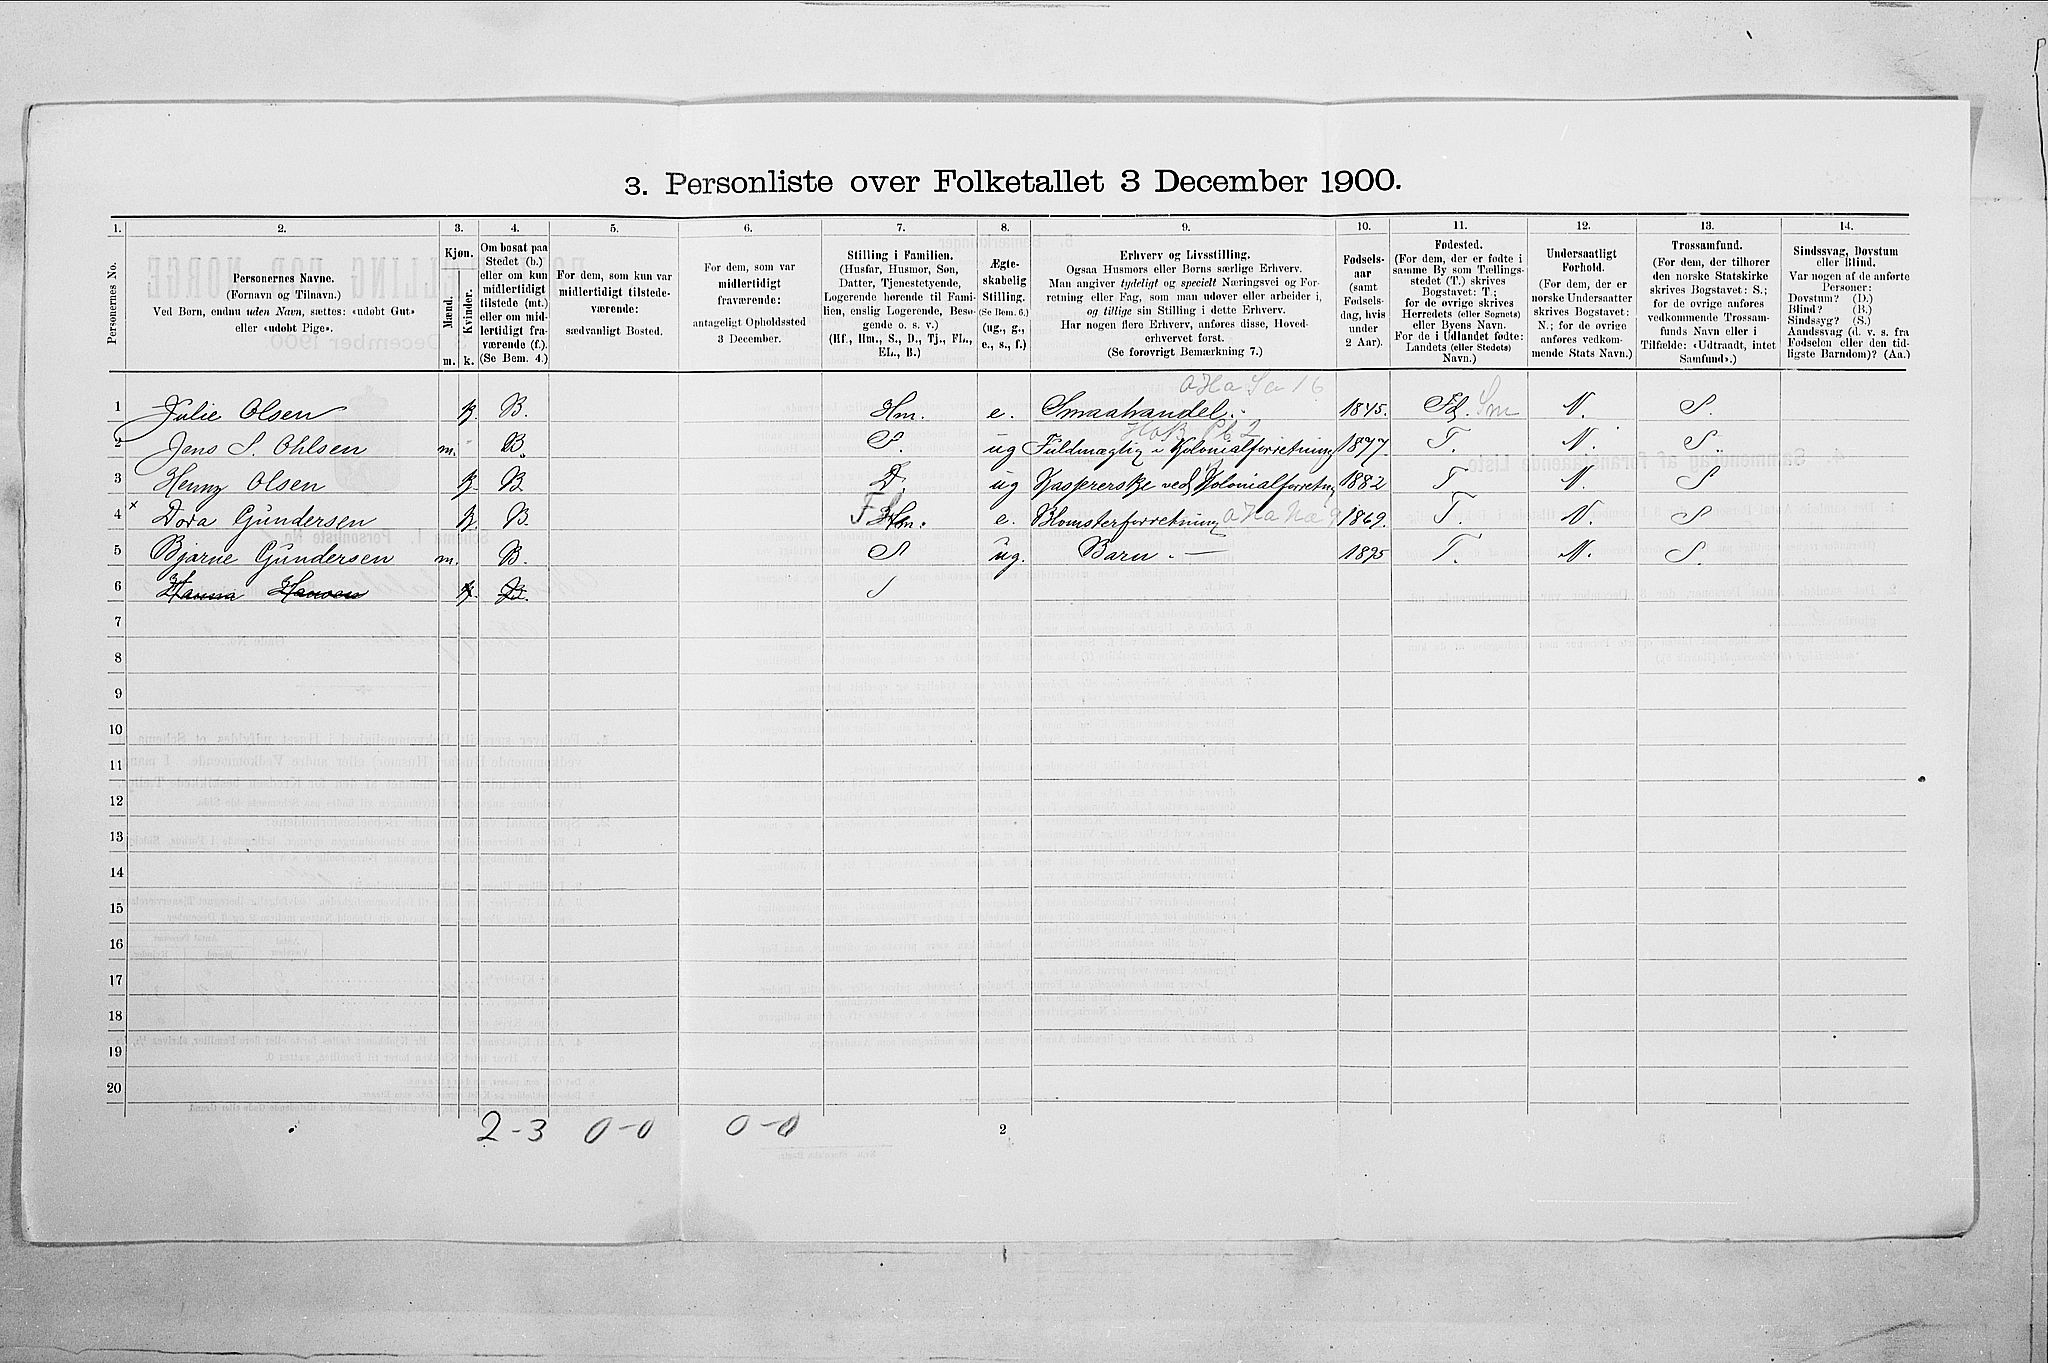 3. Personliste over Folketallet 3 December 1900.
1. 2. 3. 4. 5. 6. 7. 8. 9. 10. 11. 12. 13. 14.
Personernes No.
Personernes Navne.
(Fornavn og Tilnavn.)
Ved Børn, endnu uden Navn, sættes: «udøbt Gut»
eller «udøbt Pige».
Kjøn.
Mænd.
Kvinder.
m. k.
Om bosat paa
Stedet (b.)
eller om kun
midlertidigt
tilstede (mt.)
eller om mid-
lertidigt fra-
værende (f.).
(Se Bem. 4.)
For dem, som kun var
midlertidigt tilstede-
værende:
sædvanligt Bosted.
For dem, som var
midlertidigt
fraværende:
antageligt Opholdssted
3 December.
Stilling i Familien.
(Husfar, Husmor, Søn,
Datter, Tjenestetyende,
Logerende hørende til Fami-
lien, enslig Logerende, Besø-
gende o. s. v.)
(Hf., Hm., S., D., Tj., FL.,
EL., B.)
Ægte-
skabelig
Stilling.
(Se Bem. 6.)
(ug., g.,
e., s., f.)
Erhverv og Livsstilling.
Ogsaa Husmors eller Børns særlige Erhverv.
Man angiver tydeligt og specielt Næringsvei og For-
retning eller Fag, som man udøver eller arbeider i,
og tillige sin Stilling i dette Erhverv.
Har nogen flere Erhverv, anføres disse, Hoved-
erhvervet først.
(Se forøvrigt Bemærkning 7.)
Fødsels-
aar
(samt
Fødsels-
dag, hvis
under
2 Aar).
Fødested.
(For dem, der er fødte i
samme By som Tællings-
stedet (T.) skrives
Bogstavet: T.;
for de øvrige skrives
Herredets (eller Sognets)
eller Byens Navn.
For de i Udlandet fødte:
Landets (eller Stedets)
Navn.)
Undersaatligt
Forhold.
(For dem, der er
norske Undersaatter
skrives Bogstavet:
N.; for de øvrige
anføres vedkom-
mende Stats Navn.)
Trossamfund.
(For dem, der tilhører
den norske Statskirke
skrives Bogstavet: S.;
for de øvrige anføres
vedkommende Trossam-
funds Navn eller i
Tilfælde: «Udtraadt, intet
Samfund».)
Sindssvag, Døvstum
eller Blind.
Var nogen af de anførte
Personer:
Døvstum? (D.)
Blind? (B.)
Sindssyg? (S.)
Aandssvag (d. v. s. fra
Fødselen eller den tid-
ligste Barndom)? (Aa.)
1 Julie Olsen k. B. Hm. e. Smaahandel. 1845. Sm N. S.
2 Jens S. Ohlsen m. B. S. ug Fuldmægtig i Kolonialforretning 1877. T. N. S.
3 Henny Olsen k. B. D. ug Kassererske ved Kolonialforretng 1882 T N. S
4 × Dora Gundersen k. B. Hm. e. Blomsterforretning 1869. T. N. S
5 Bjarne Gundersen m. B. S ug. Barn. — 1895 T. N. S.
6 Hanna Hansen k. B.
7
8
9
10
11
12
13
14
15
16
17
18
19
20
2-3 0-0 0-0
2